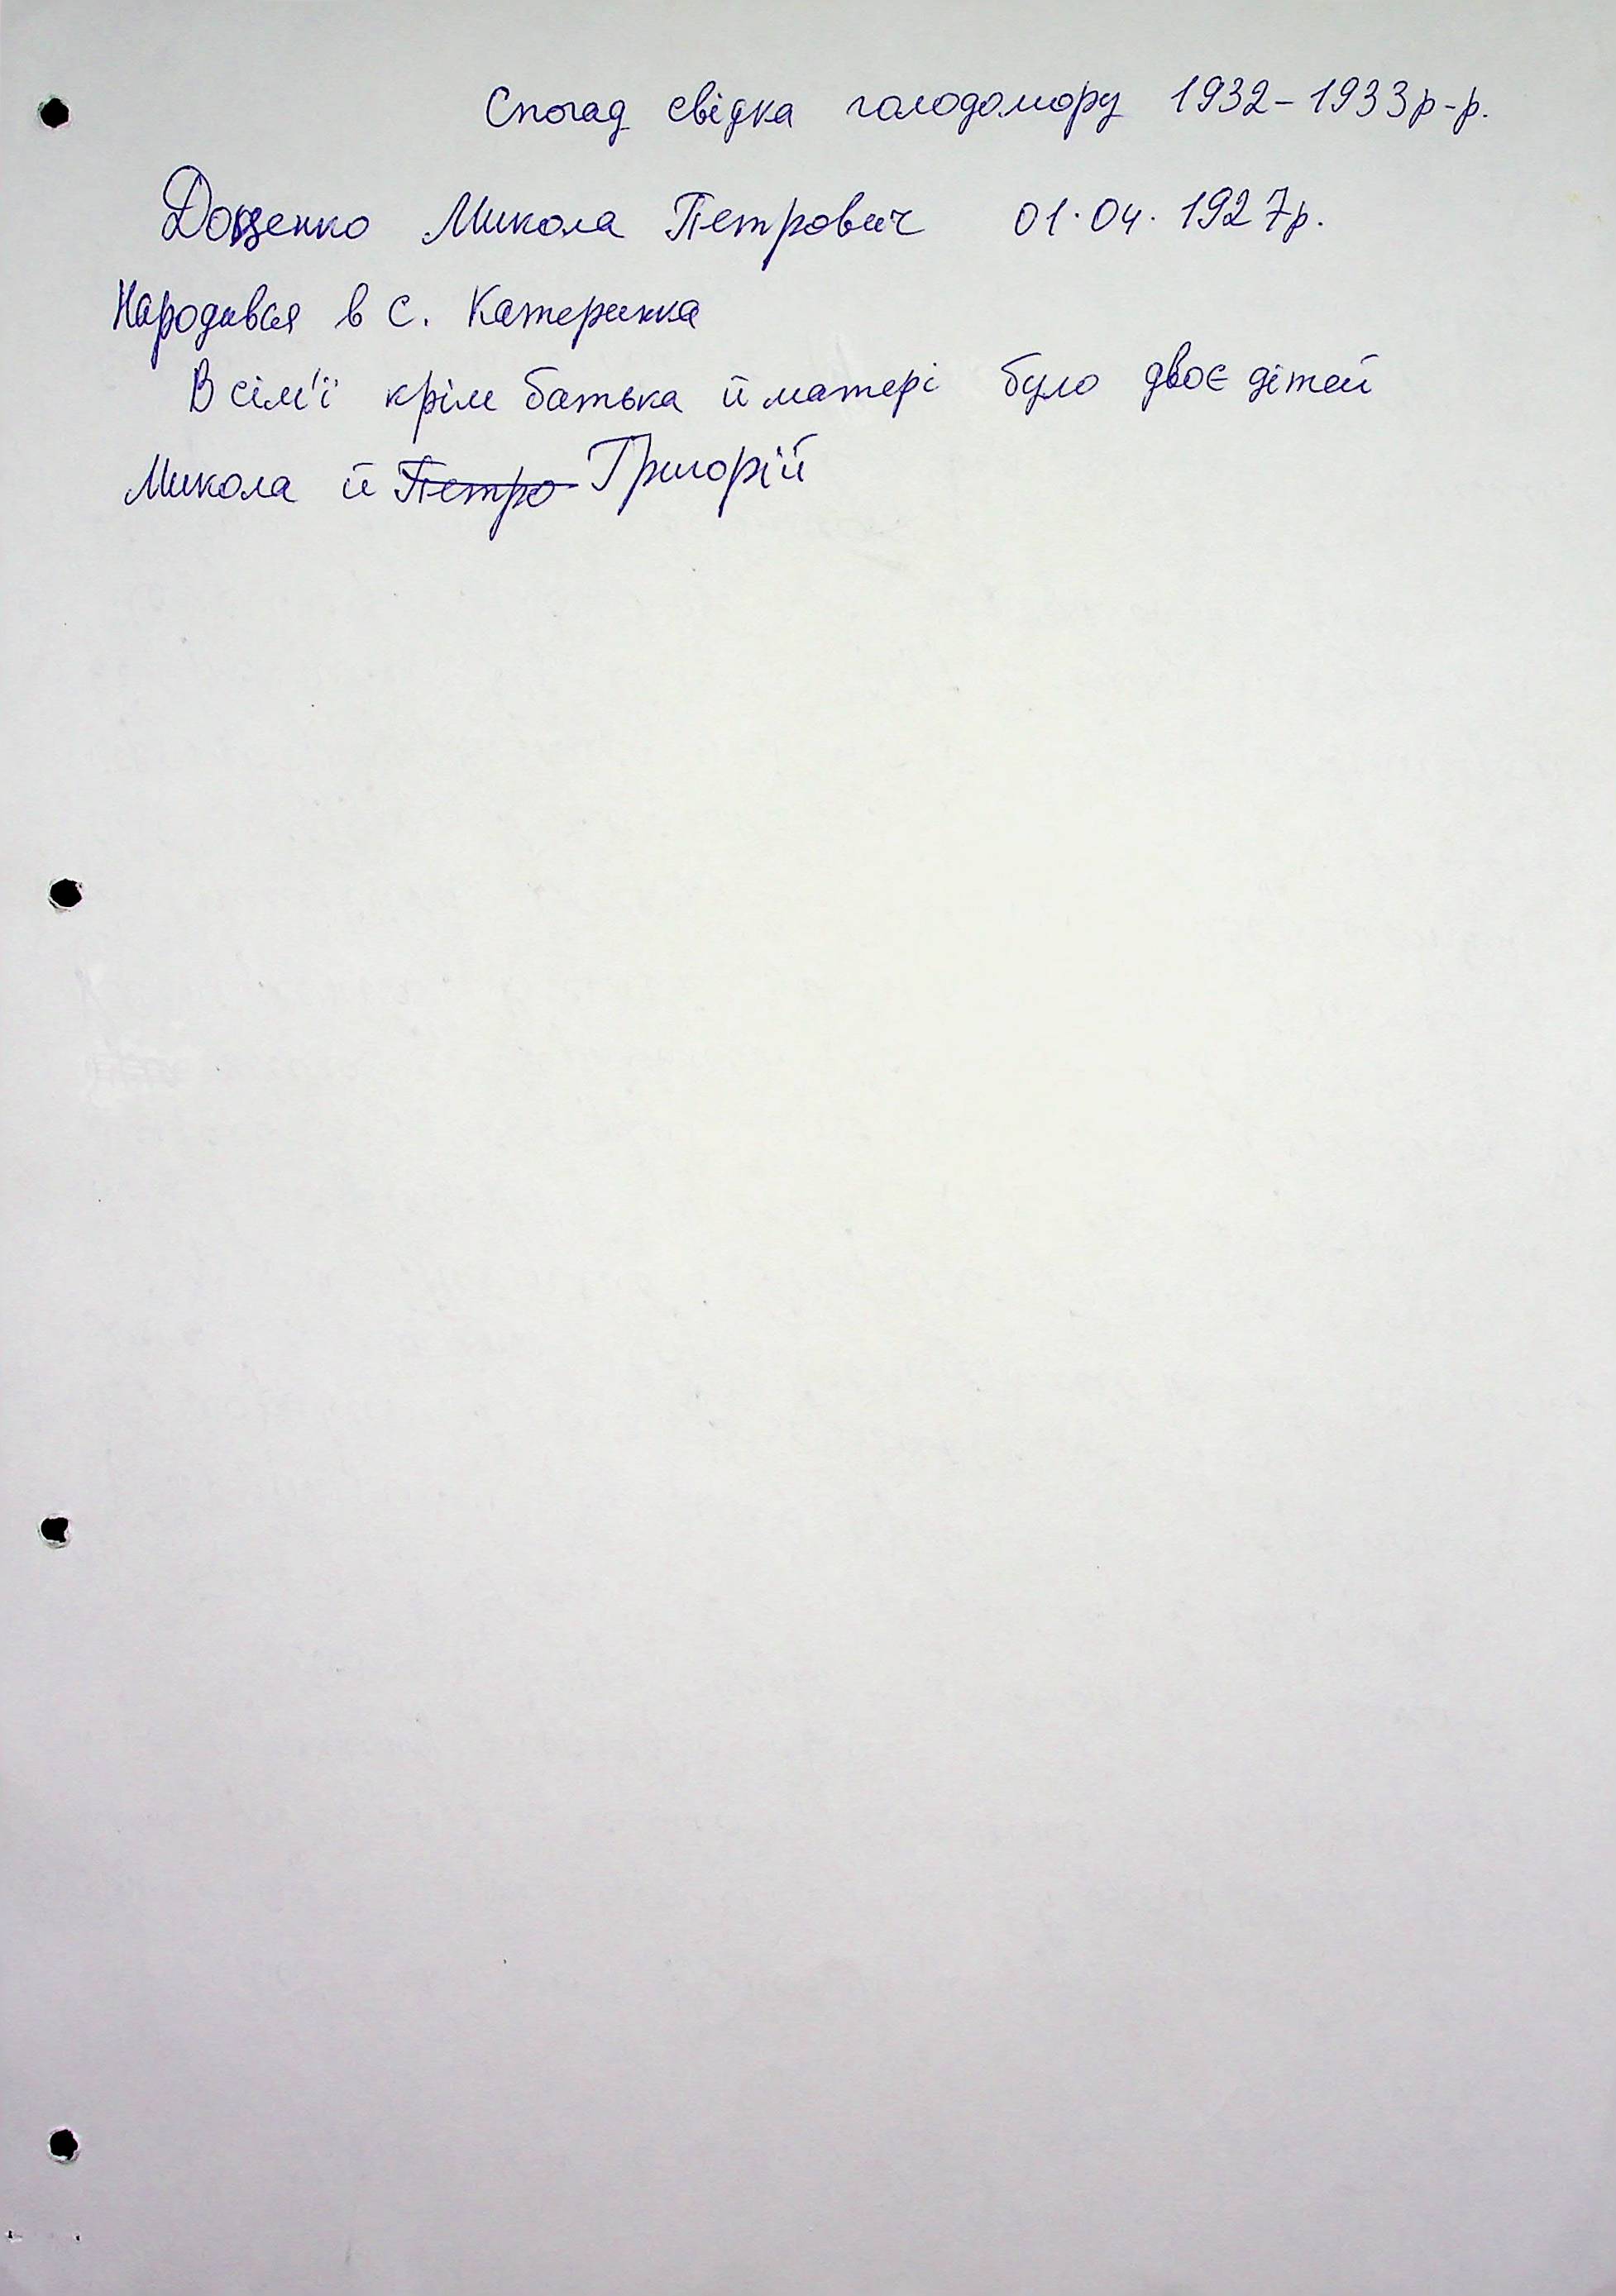 Спогад свідка голодомору 1932-1933р-р.
Доценко Микола Петрович 01.04.1927р.
Народився в с. Катеринка
В сім'ї крім батька й матері було двоє дітей
Микола й Петро Григорій